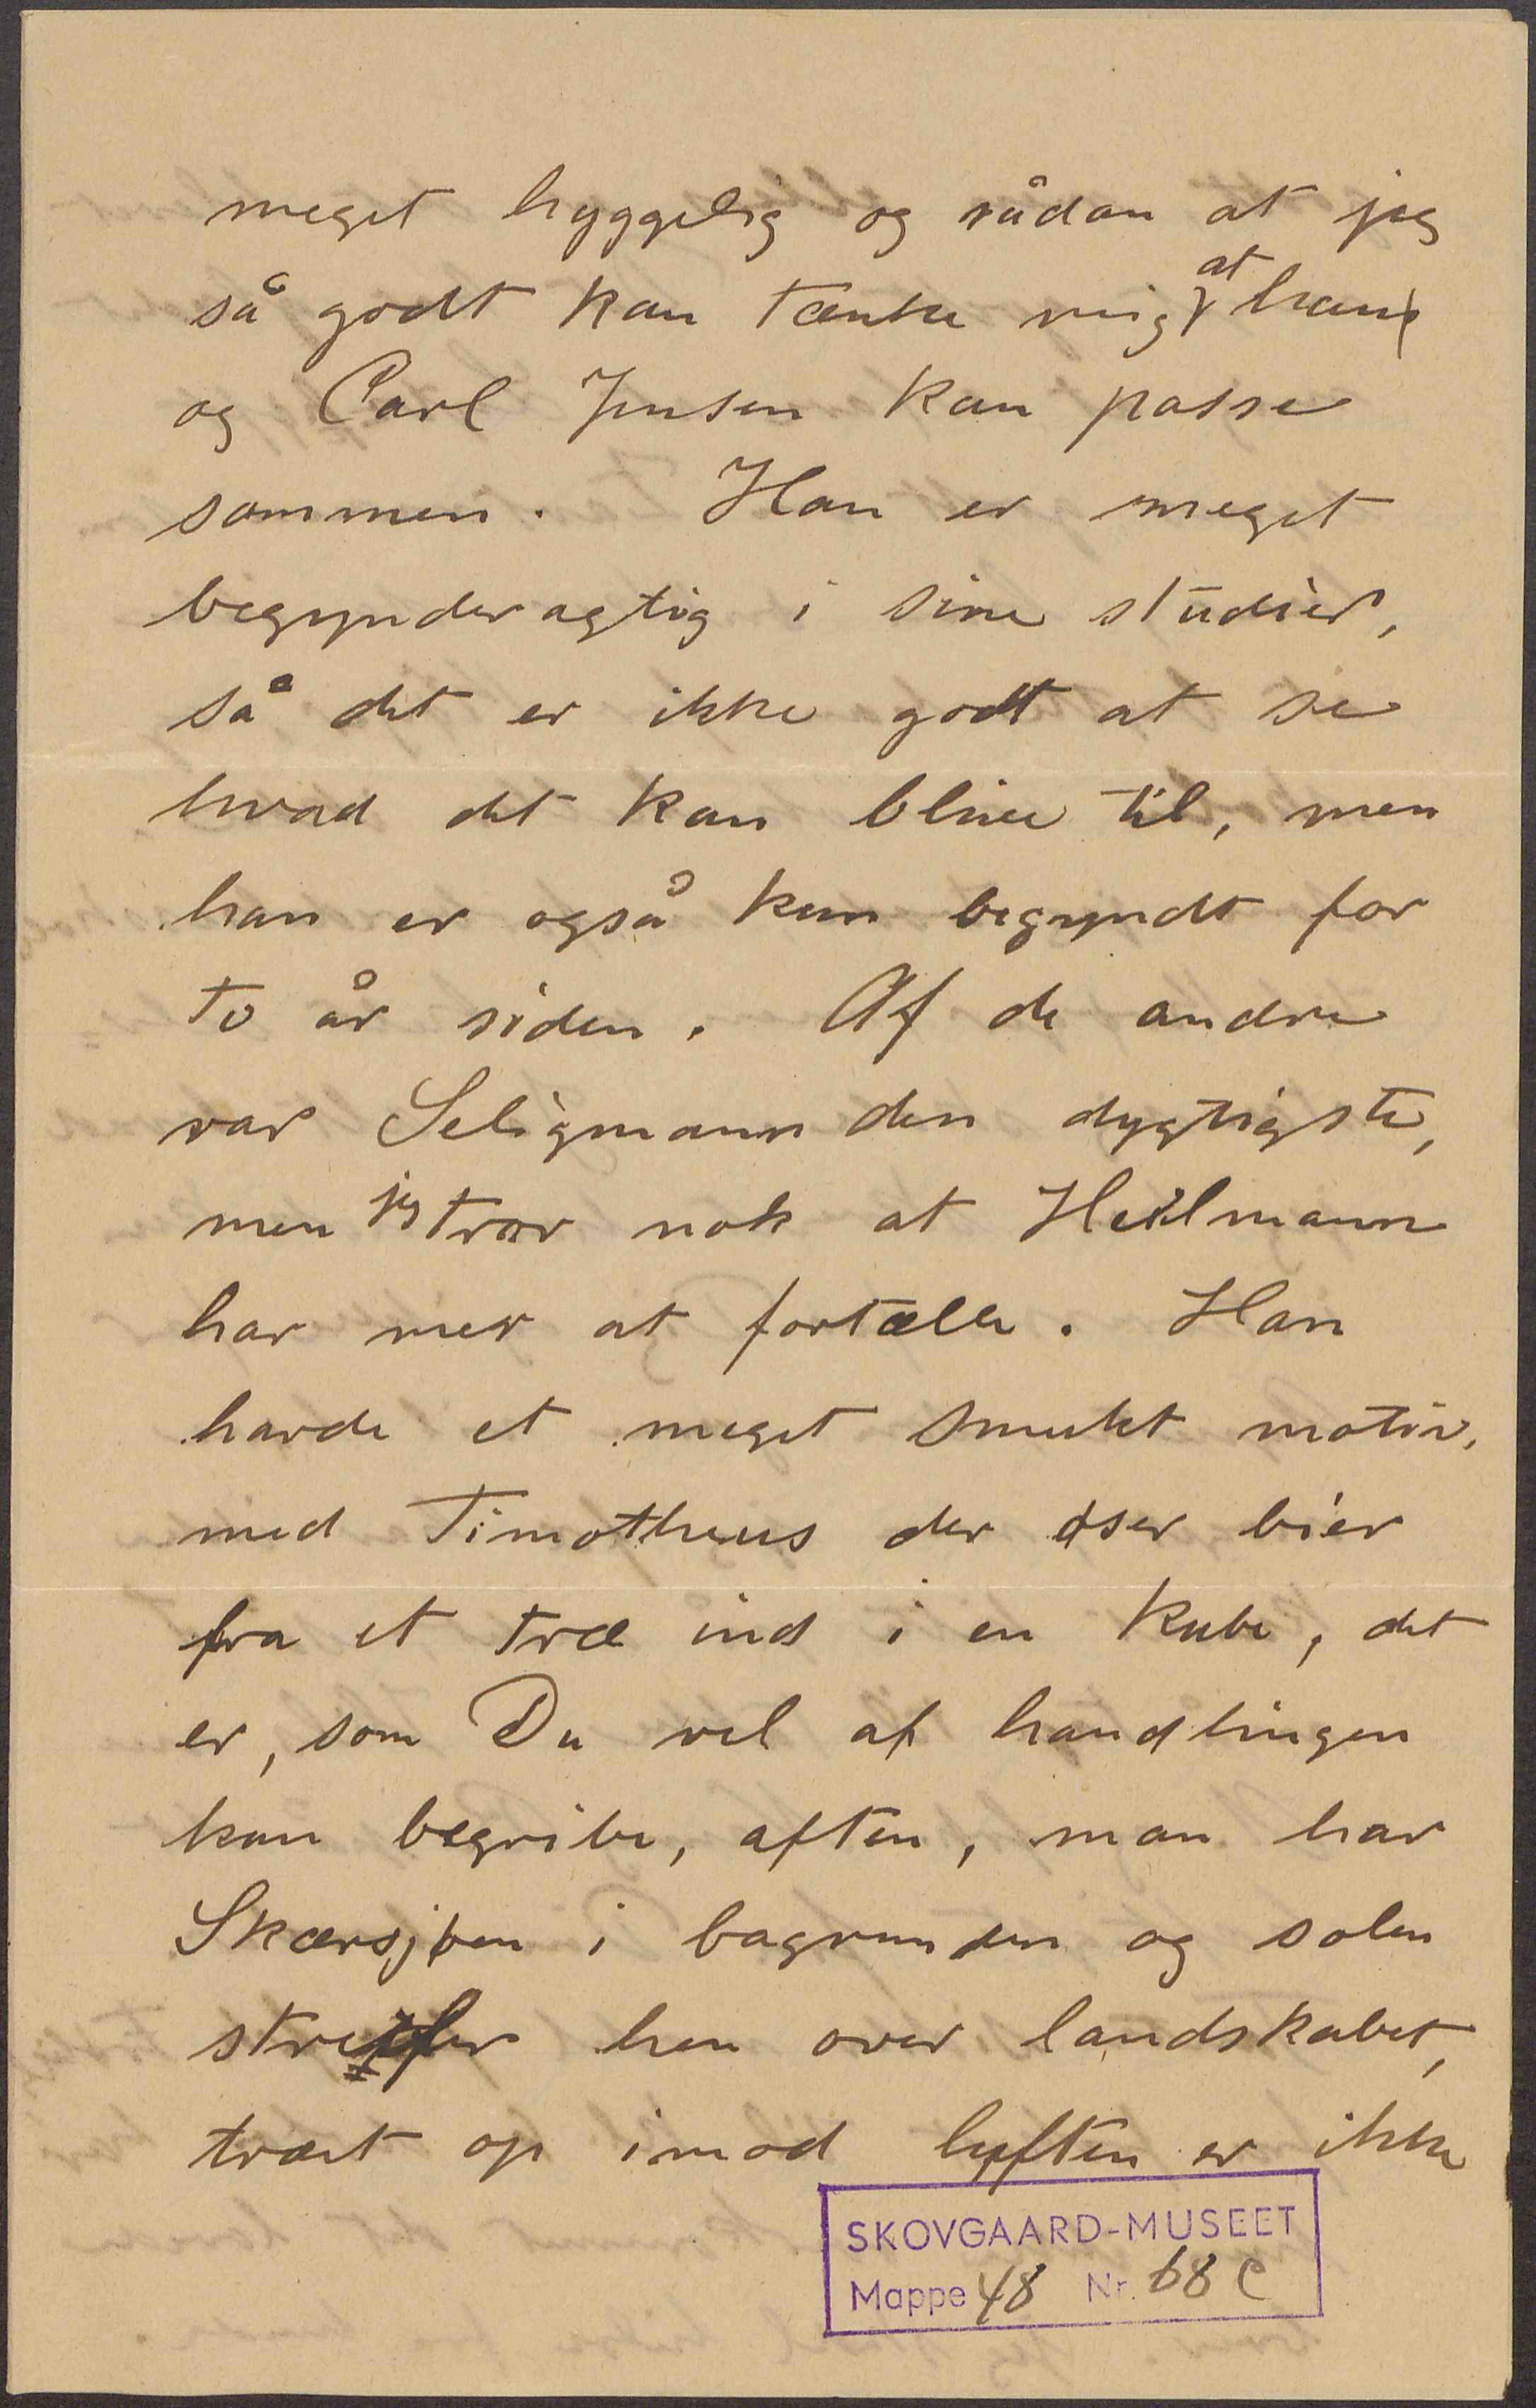 meget hyggelig og sådan at jeg
så godt kan tænke mig at han
og Carl Jensen kan passe
sammen. Han er meget
begynderagtig i sine studier,
så det er ikke godt at se
hvad det kan blive til, men
han er også kun begyndt for
to år siden. Af de andre
var Seligmann den dygtigste,
men jeg tror nok at Heilmann
har mer at fortælle. Han
havde et meget smukt motiv,
med Timotheus der øser bier
fra et træ ind i en kube, det
er, som Du vel af handlingen
kan begribe, aften, man har
Skærsjøen i bagrunden og solen
streifer hen over landskabet,
træet op imod luften er ikke
SKOVGAARD-MUSEET
Mappe 48 Nr. 68 e